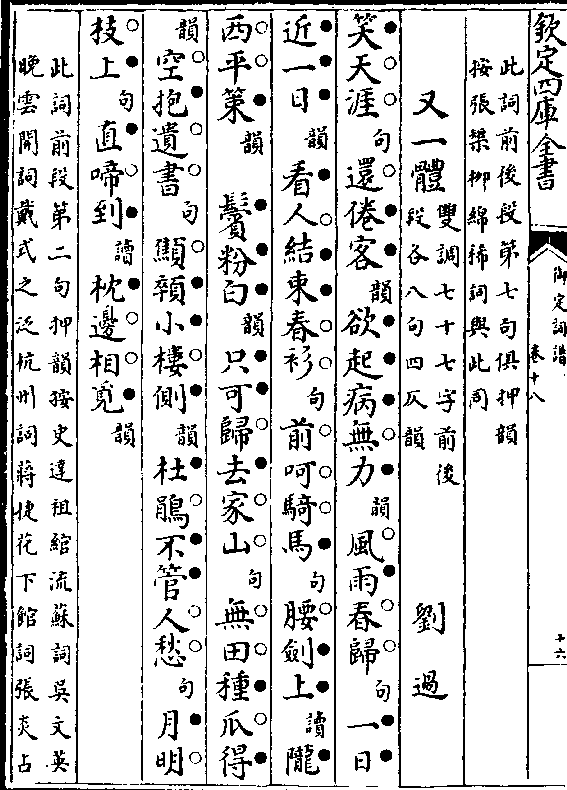 欽定四庫全書
御定詞譜
卷十八
十六
此詞前後段第七句俱押韻
按張榘柳綿稀詞與此同
又一體 雙調七十七字前後
段各八句四仄韻
劉過
笑天涯句還倦客韻欲起病無力韻風雨春歸句一日
近一日韻看人結束春衫句前呵騎馬句腰劍上讀隴
西平策韻 鬢粉白韻只可歸去家山句無田種瓜得
韻空抱遺書句顦顇小樓側韻杜鵑不管人愁句月明
枝上句直啼到讀枕邊相覓韻
此詞前段第二句押韻按史達祖綰流蘇詞吳文英
晚雲開詞戴式之泛杭州詞蔣捷花下館詞張炎占